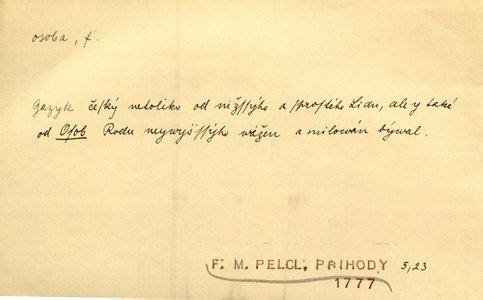 osoba, f.
Gazyk český netoliko od nižſſýho a ſproſtého Lidu, ale y také
od Oſob Rodu neywyšſſýho wážen a milowán býwal.
F. M. PELCL, PRIHODY 5,23
1777